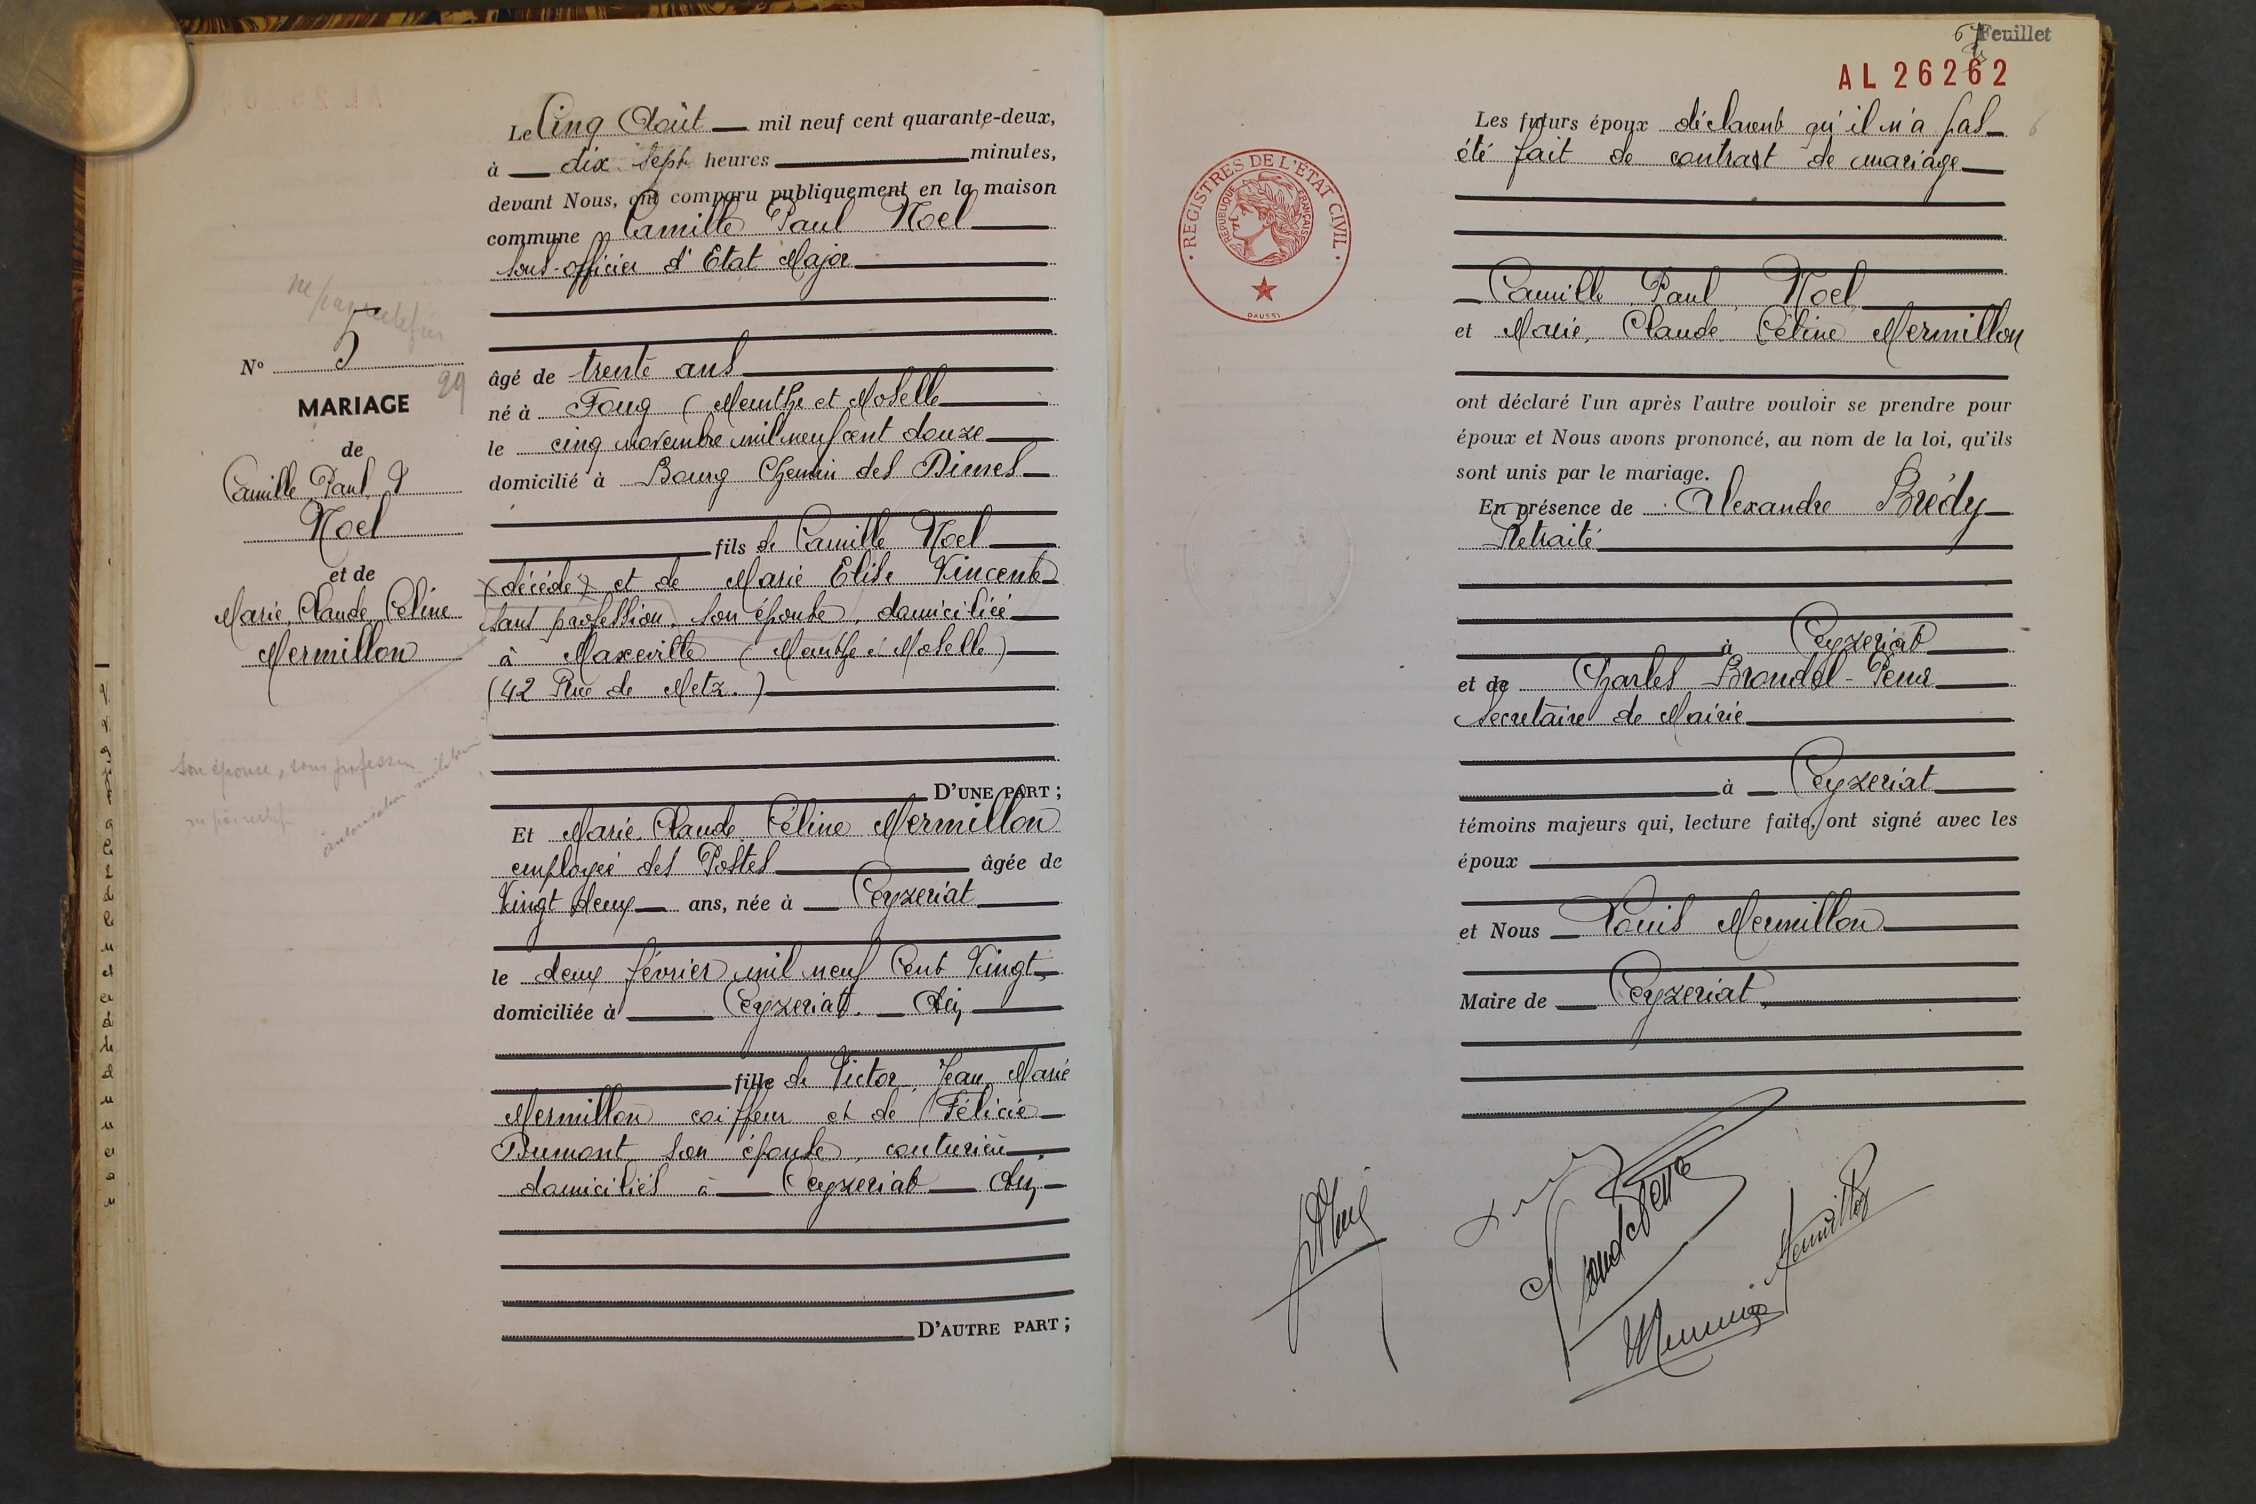 Le Cinq Août mil neuf cent quarante-deux,
à dix sept heures minutes,
devant Nous, ont comparu publiquement en la maison
commune Camille Paul Noel
sous-officier d'Etat Major
N° 5
29
MARIAGE
de
Camille Paul
Noel
et de
Marie, Claude, Céline
Mermillon
son épouse, sans profession
âgé de trente ans
né à Foug (Meurthe et Moselle
le cinq novembre mil neuf cent douze
domicilié à Bourg Chemin des Dimes
fils de Camille Noel
(décédé) et de Marie Elise Vincent
sans profession, son épouse, domiciliée
à Maxeville (Meurthe et Moselle)
(42 Rue de Metz.)
D'UNE PART ;
Et Marie Claude Céline Mermillon
employée des Postes âgée de
Vingt deux ans, née à Ceyzeriat
le deux février mil neuf Cent Vingt,
domiciliée à Ceyzeriat. Ain
fille de Victor, Jean, Marie
Mermillon coiffeur et de Félicie
Bumont, son épouse, couturière
domiciliés à Ceyzeriat Ain
D'AUTRE PART ;
Feuillet
AL 26262
REGISTRES DE L'ÉTAT CIVIL
RÉPUBLIQUE FRANÇAISE
DAUSSI
Les futurs époux déclarent qu'il n'a pas
été fait de contrat de mariage
Camille, Paul, Noel
et Marie, Claude, Céline Mermillon
ont déclaré l'un après l'autre vouloir se prendre pour
époux et Nous avons prononcé, au nom de la loi, qu'ils
sont unis par le mariage.
En présence de Alexandre Brédy
Retraité
à Ceyzeriat
et de Charles Brondel-Pene
Secrétaire de Mairie
à Ceyzeriat
témoins majeurs qui, lecture faite, ont signé avec les
époux
et Nous Louis Mermillon
Maire de Ceyzeriat,
Mermillon